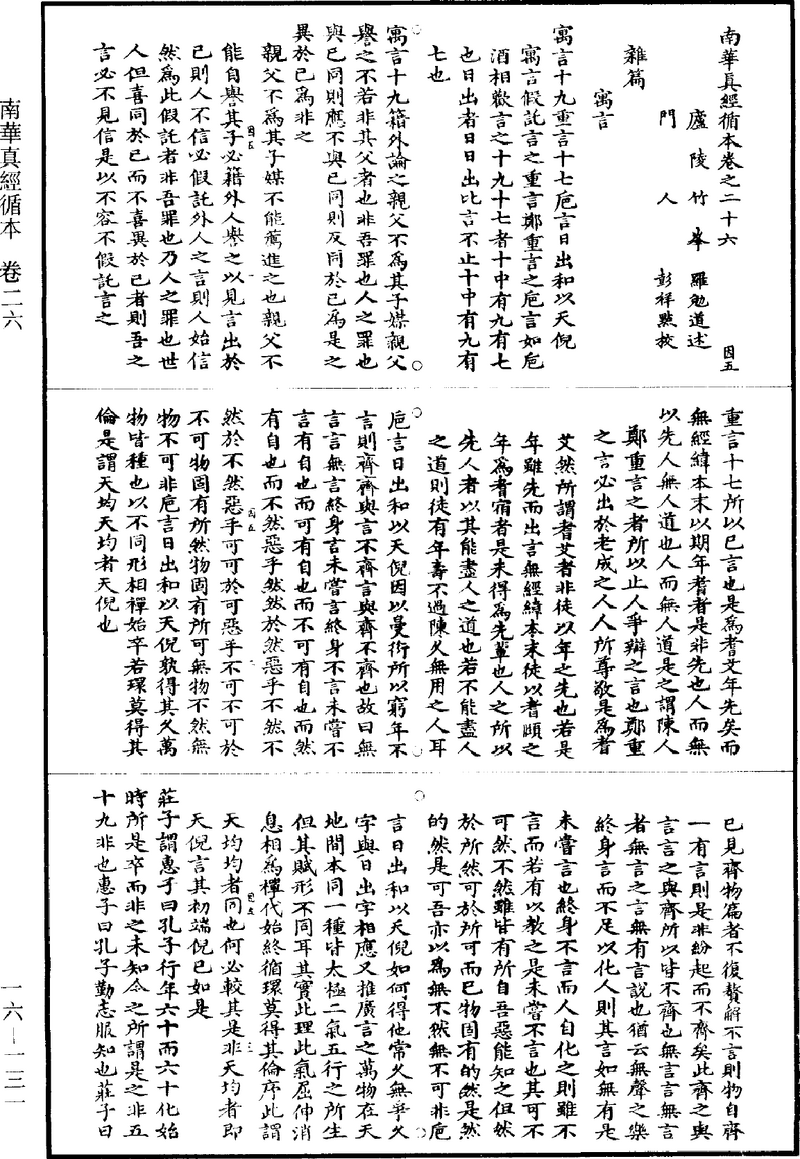 南華真經循本卷之二十六
因五
廬陵竹峯羅勉道述
門人彭祥點校
雜篇
寓言
寓言十九重言十七巵言日出和以天倪
寓言假託言之重言鄭重言之巵言如巵
酒相歡言之十九十七者十中有九有七
也日出者日日出比言不止十中有九有
七也
寓言十九籍外論之親父不為其子媒親父
譽之不若非其父者也非吾罪也人之罪也
與已同則應不與已同則反同於已為是之
異於已為非之
親父不為其子媒不能薦進之也親父不
能自譽其子必籍外人譽之以見言出於
已則人不信必假託外人之言則人始信
然為此假託者非吾罪也乃人之罪也世
人但喜同於已而不喜異於已者則吾之
言必不見信是以不容不假託言之
重言十七所以已言也是為耆艾年先矣而
無經緯本末以期年耆者是非先也人而無
以先人無人道也人而無人道是之謂陳人
鄭重言之者所以止人爭辯之言也鄭重
之言必出於老成之人人所尊敬是為耆
艾然所謂耆艾者非徒以年之先也若是
年雖先而出言無經緯本末徒以耆頤之
年為耆宿者是未得為先輩也人之所以
先人者以其能盡人之道也若不能盡人
之道則徒有年壽不過陳久無用之人耳
巵言日出和以天倪因以曼衍所以窮年不
言則齊齊與言不齊言與齊不齊也故曰無
言言無言終身言未嘗言終身不言未嘗不
言有自也而可有自也而不可有自也而然
有自也而不然惡乎然然於然惡乎不然不
然於不然惡乎可可於可惡乎不可不可於
不可物固有所然物固有所可無物不然無
物不可非巵言日出和以天倪孰得其久萬
物皆種也以不同形相禪始卒若環莫得其
倫是謂天均天均者天倪也
已見齊物篇者不復贅解不言則物自齊
一有言則是非紛起而不齊矣此齊之與
言言之與齊所以皆不齊也無言言無言
者無言之言無有言說也猶云無聲之樂
終身言而不足以化人則其言如無有是
未嘗言也終身不言而人自化之則雖不
言而若有以教之是未嘗不言也其可不
可然不然雖皆有所自吾惡能知之但然
於所然可於所可而已物固有的然是然
的然是可吾亦以為無不然無不可非巵
言日出和以天倪如何得他常久無爭久
字與日出字相應又推廣言之萬物在天
地間本同一種皆太極二氣五行之所生
但其賦形不同耳其實此理此氣屈伸消
息相為禪代始終循環莫得其倫序此謂
天均均者同也何必較其是非天均者即
天倪言其初端倪已如是
莊子謂惠子曰孔子行年六十而六十化始
時所是卒而非之未知今之所謂是之非五
十九非也惠子曰孔子勤志服知也莊子曰
南華真經循本 卷二六
一六—一三一